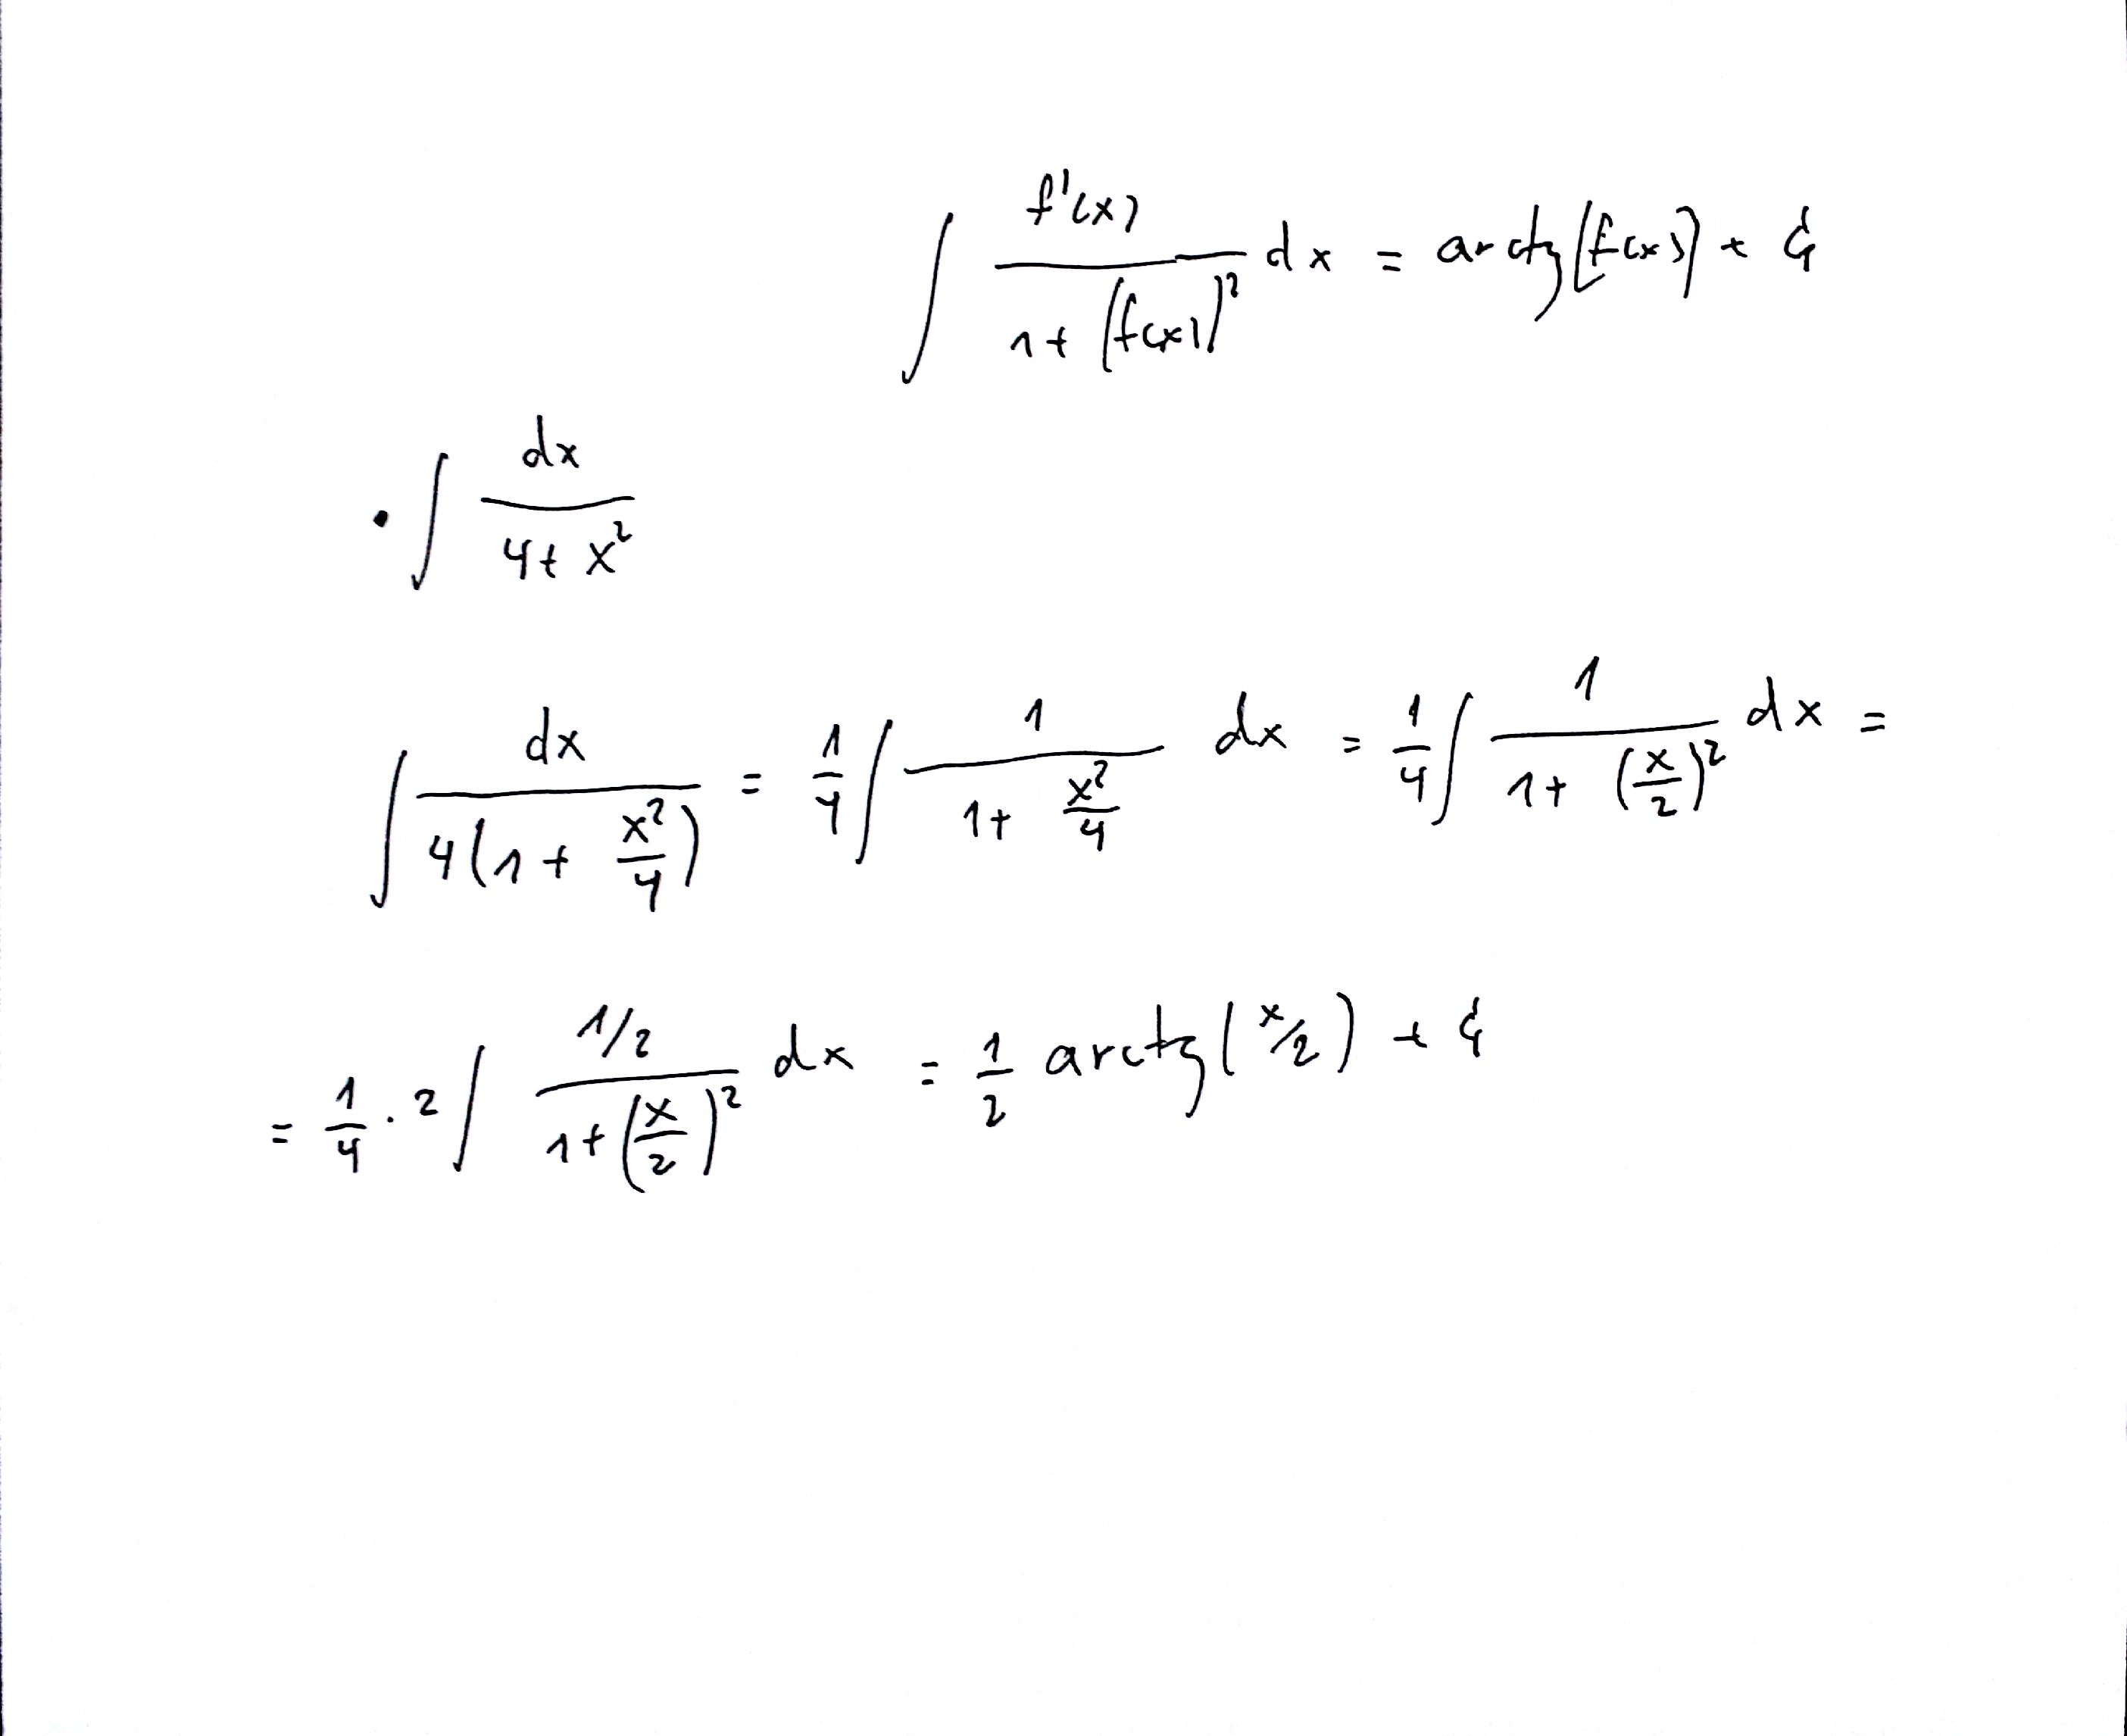 ∫ f'(x) / (1 + (f(x))²) dx = arctg(f(x)) + C
• ∫ dx / (4 + x²)
∫ dx / (4(1 + x²/4)) = 1/4 ∫ 1 / (1 + x²/4) dx = 1/4 ∫ 1 / (1 + (x/2)²) dx =
= 1/4 · 2 ∫ (1/2) / (1 + (x/2)²) dx = 1/2 arctg(x/2) + C